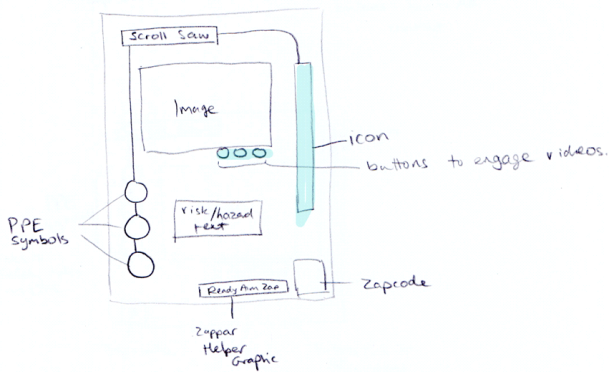 Scroll Saw
Image
icon
buttons to engage videos.
PPE
Symbols
risk/hazad
text
Ready Aim Zap
Zapcode
Zappar
Helper
Graphic